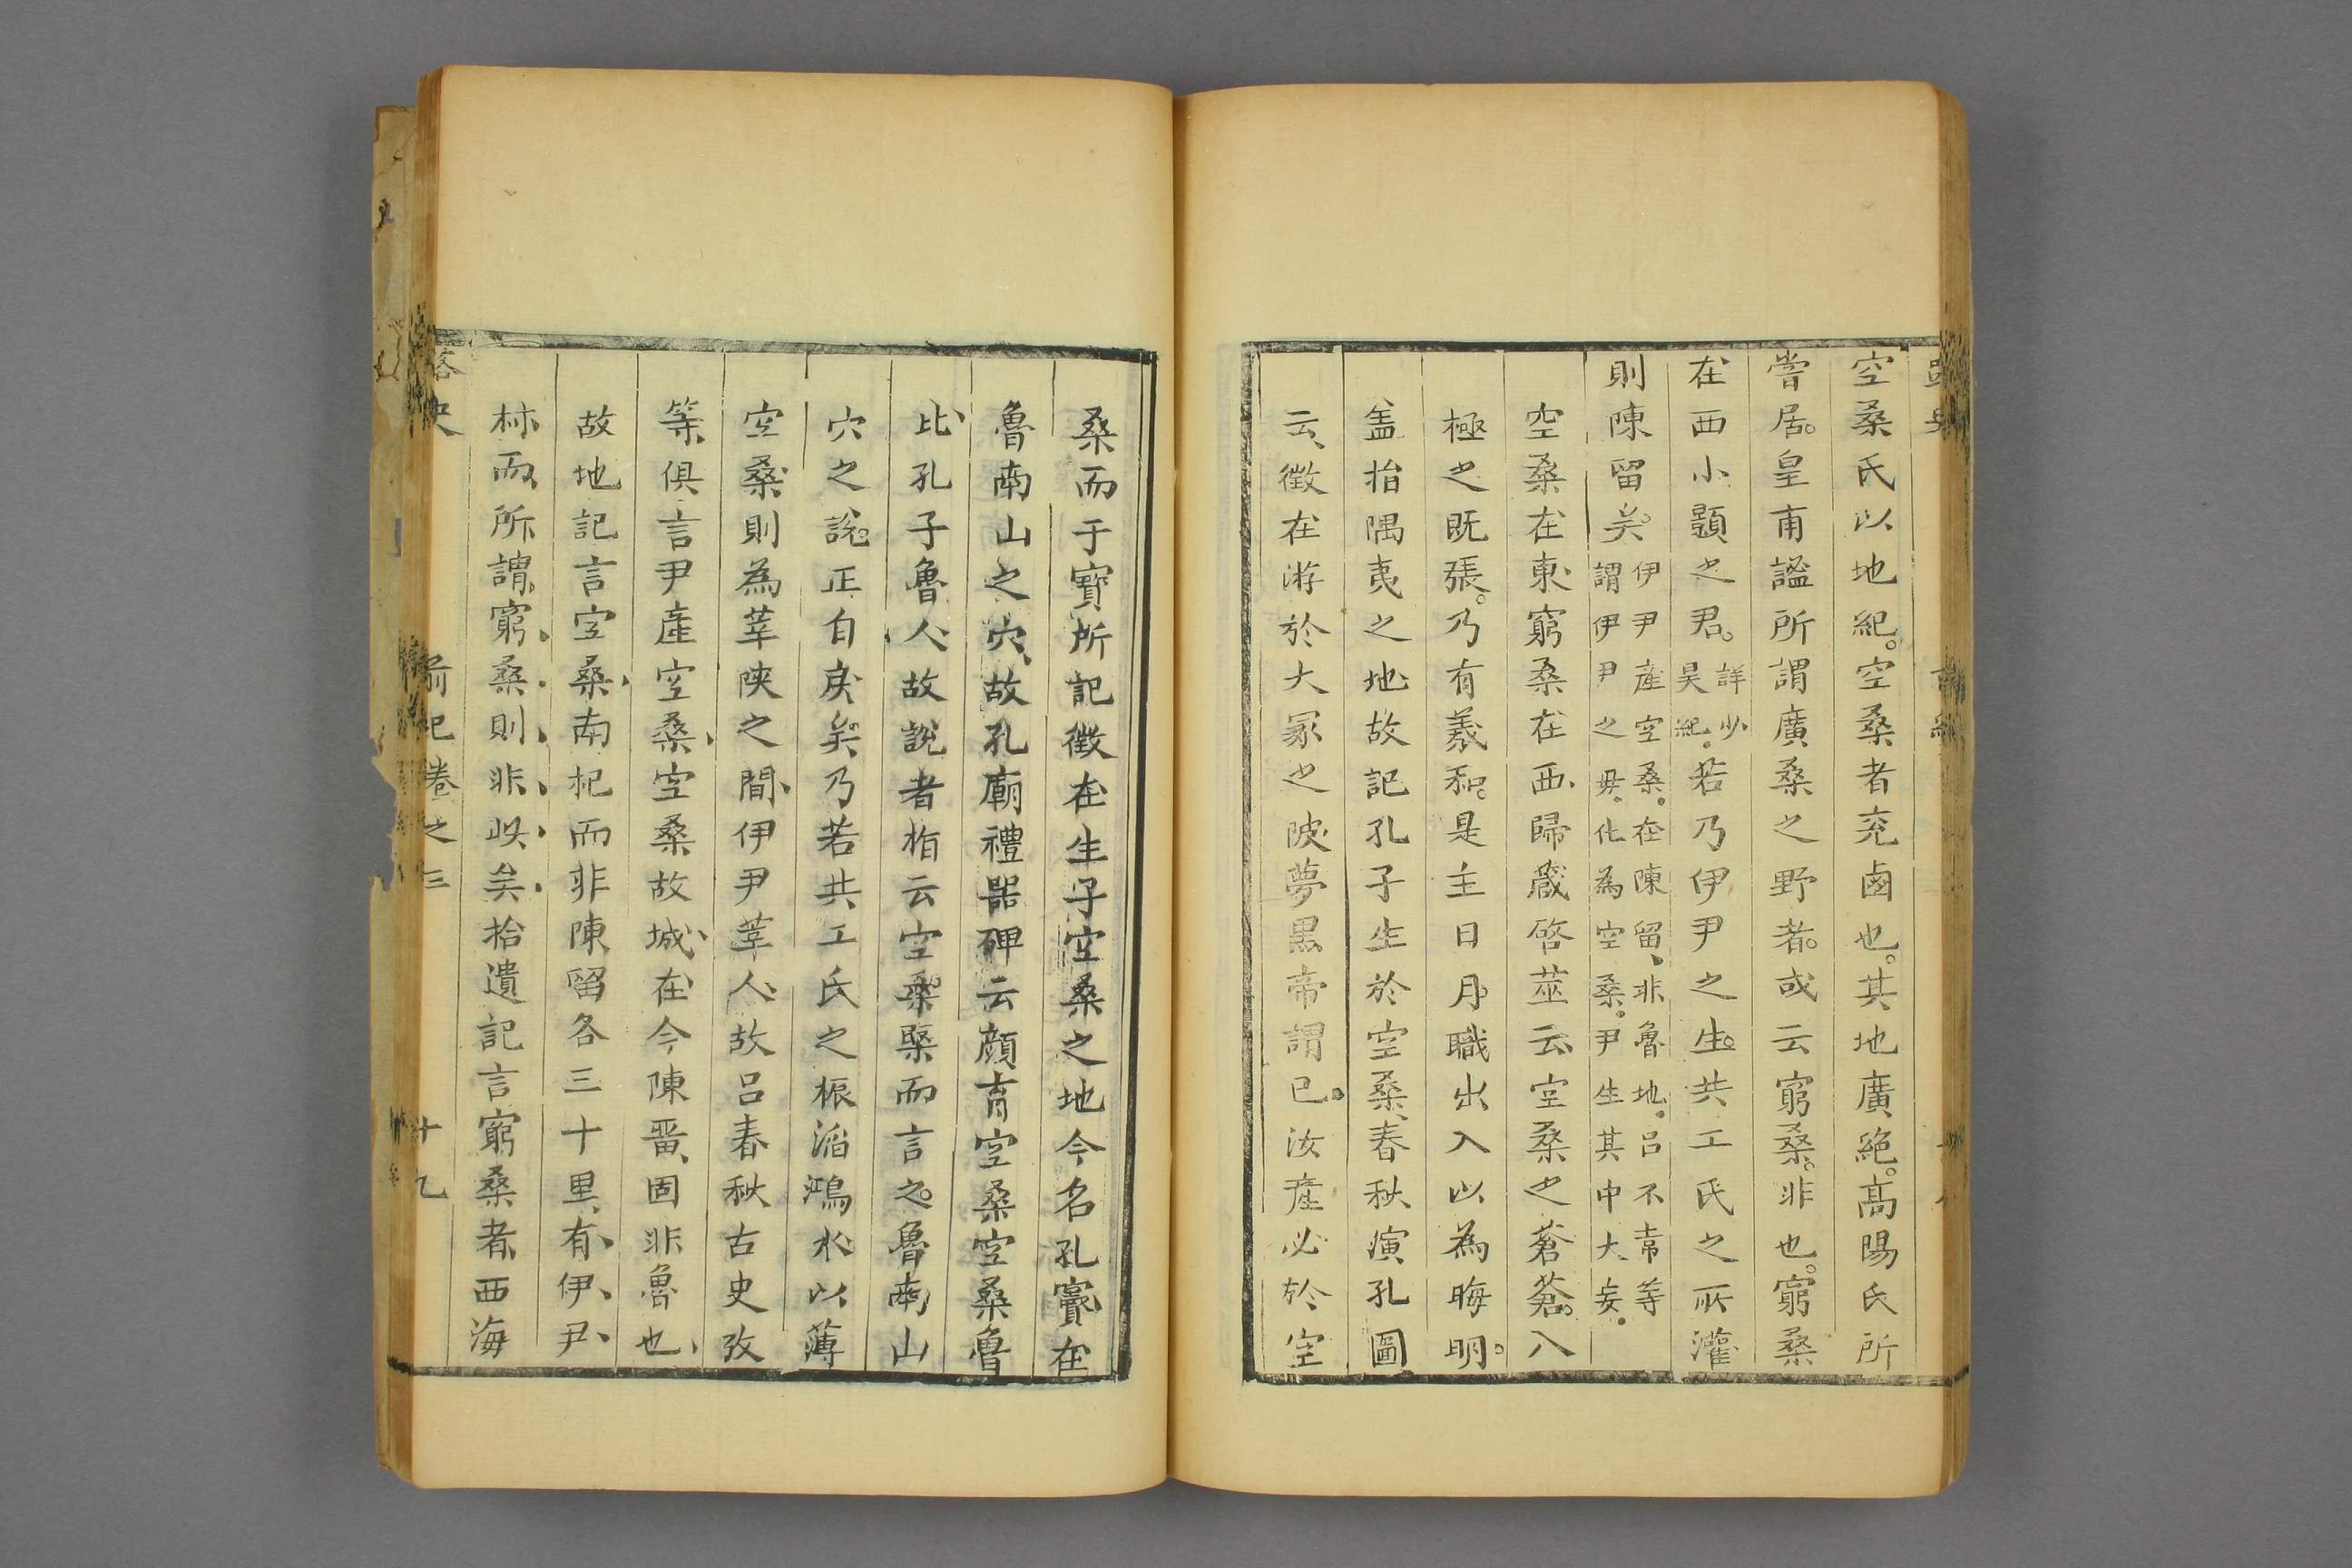 空桑氏以地紀。空桑者兖鹵也。其地廣絶。高陽氏所
嘗居。皇甫謐所謂廣桑之野者。或云窮桑。非也。窮桑
在西小顥之君。詳少昊紀。若乃伊尹之生。共工氏之所灌
則陳留矣。伊尹產空桑。在陳留、非魯地。呂不韋等謂伊尹之母、化為空桑。尹生其中大妄。
空桑在東、窮桑在西、歸藏啓莁云、空桑之蒼蒼。八
極之既張。乃有羲和。是主日月、職出入以為晦明。
盖指隅夷之地、故記孔子生於空桑、春秋演孔圖
云、徵在游於大冢之陂、夢黒帝謂已。汝產必於空
桑而于寶所記徵在生子空桑之地今名孔竇在
魯南山之穴、故孔廟禮器碑云顔育空桑空桑魯
北、孔子魯人、故說者指云空桑槩而言之。魯南山
穴之說。正自戾矣。乃若共工氏之振滔鴻水以薄
空桑、則為莘陝之間、伊尹莘人、故呂春秋古史攷
等、俱言尹產空桑、空桑故城、在今陳畱、固非魯也、
故地記言空桑、南杞而非陳留各三十里、有、伊、尹、
林、而所謂、窮桑則、非、此、矣、拾遺記言窮桑者、西海
路史
前紀卷之三
十九